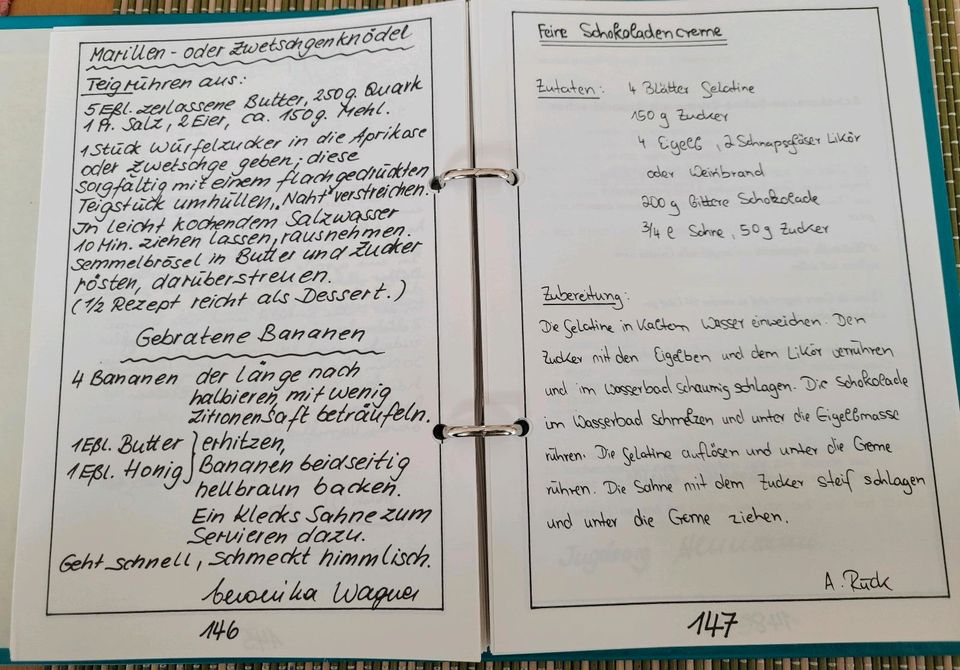 Marillen- oder Zwetschgenknödel
Teigrühren aus:
5 Eßl. zerlassene Butter, 250g. Quark
1 Pr. Salz, 2 Eier, ca. 150g. Mehl.
1 Stück Würfelzucker in die Aprikose
oder Zwetschge geben; diese
sorgfältig mit einem flachgedrückten
Teigstück umhüllen, "Naht" verstreichen.
In leicht kochendem Salzwasser
10 Min. ziehen lassen, rausnehmen.
Semmelbrösel in Butter und Zucker
rösten, darüberstreuen.
(1/2 Rezept reicht als Dessert.)
Gebratene Bananen
4 Bananen der länge nach
halbieren, mit wenig
Zitronensaft beträufeln.
1 Eßl. Butter } erhitzen,
1 Eßl. Honig } Bananen beidseitig
hellbraun backen.
Ein Klecks Sahne zum
Servieren dazu.
Geht schnell, schmeckt himmlisch.
Veronika Wagner
146
Feine Schokoladencreme
Zutaten: 4 Blätter Gelatine
150 g Zucker
4 Eigelb, 2 Schnapsgläser Likör
oder Weinbrand
200 g bittere Schokolade
3/4 l Sahne, 50 g Zucker
Zubereitung:
Die Gelatine in kaltem Wasser einweichen. Den
Zucker mit den Eigelben und dem Likör verrühren
und im Wasserbad schaumig schlagen. Die Schokolade
im Wasserbad schmelzen und unter die Eigelbmasse
rühren. Die Gelatine auflösen und unter die Creme
rühren. Die Sahne mit dem Zucker steif schlagen
und unter die Creme ziehen.
A. Rück
147